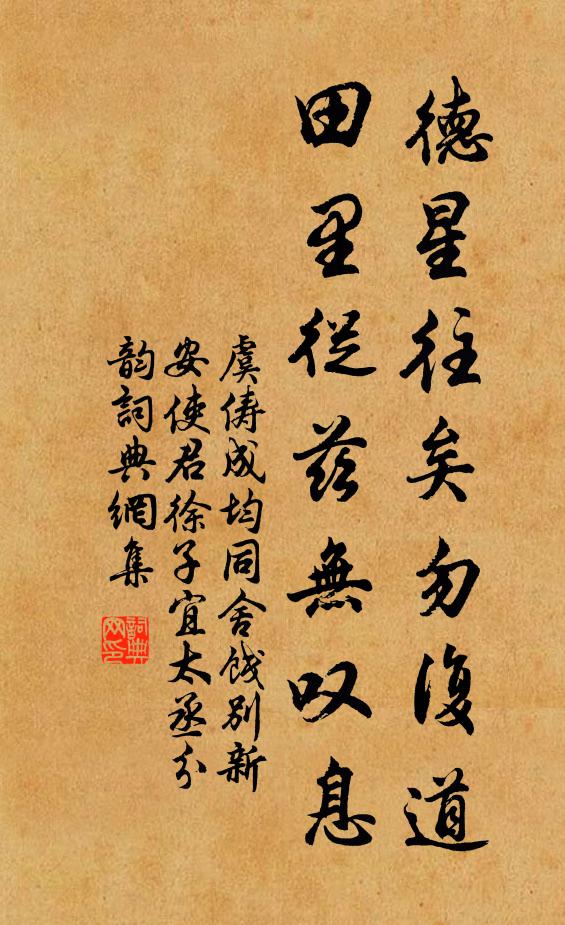 德星往矣勿復道
田里從茲無叹息
虞俦成均同舍餞别新
安使君徐子宜太丞分
韵詞典網集
詞典
网印